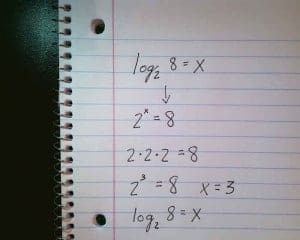 log₂ 8 = x
↓
2ˣ = 8
2·2·2 = 8
2³ = 8 x = 3
log₂ 8 = x